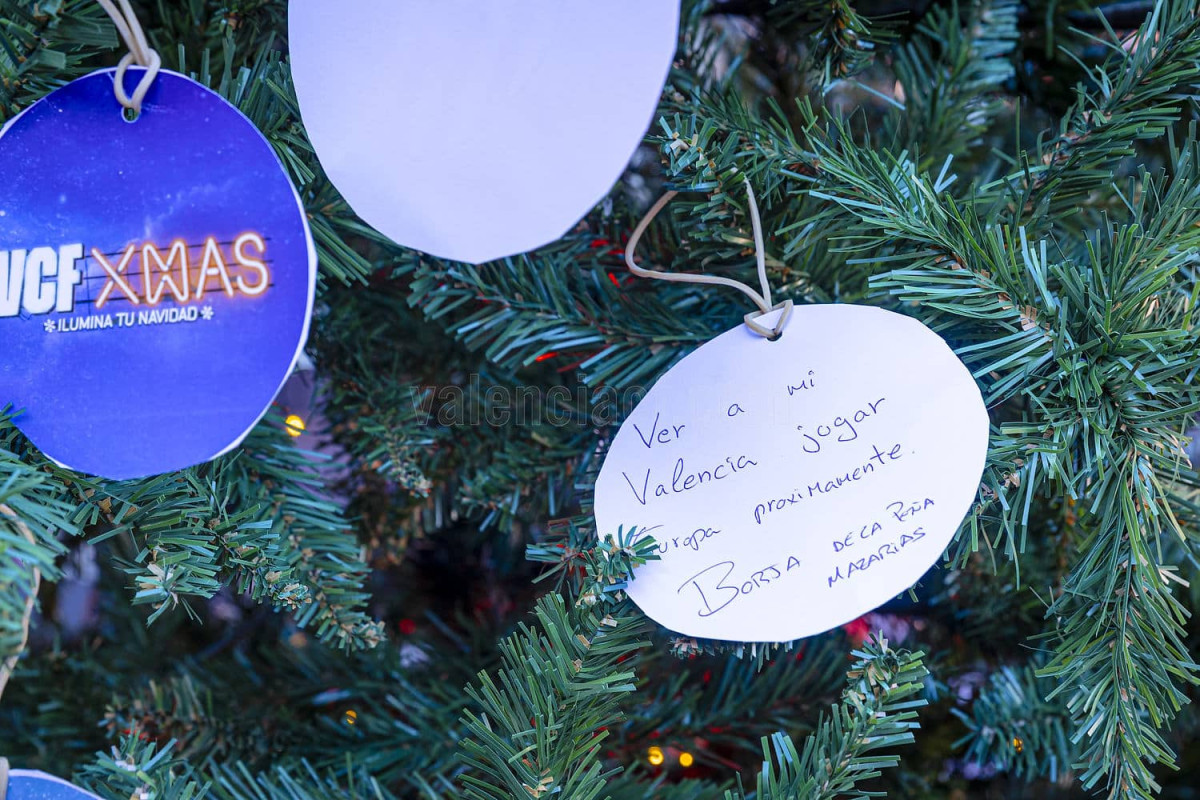 VCF XMAS
*ILUMINA TU NAVIDAD*
Ver a mi
Valencia jugar
Europa proximamente.
BORJA DE LA PEÑA
MAZARIAS